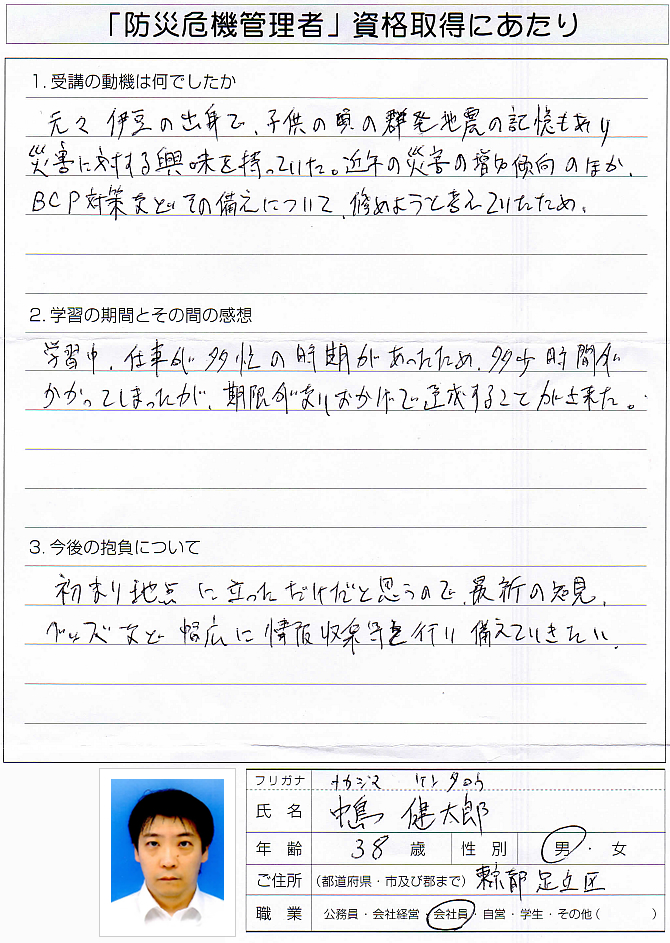 「防災危機管理者」資格取得にあたり
1. 受講の動機は何でしたか
元々伊豆の出身で、子供の頃の群発地震の記憶もあり
災害に対する興味を持っていた。近年の災害の増加傾向のほか、
BCP対策などその備えについて、修めようと考えていたため。
2. 学習の期間とその間の感想
学習中、仕事が多忙の時期があったため、多少時間が
かかってしまったが、期限がありおかげで達成することが出来た。
3. 今後の抱負について
初まり地点に立っただけだと思うので、最新の知見、
グッズなど幅広に情報収集等を行い備えていきたい。
フリガナ ナカジマ ケンタロウ
氏 名 中嶋 健太郎
年 齢 38 歳 性 別 男・女
ご住所 (都道府県・市及び郡まで) 東京都足立区
職 業 公務員・会社経営・会社員・自営・学生・その他( )